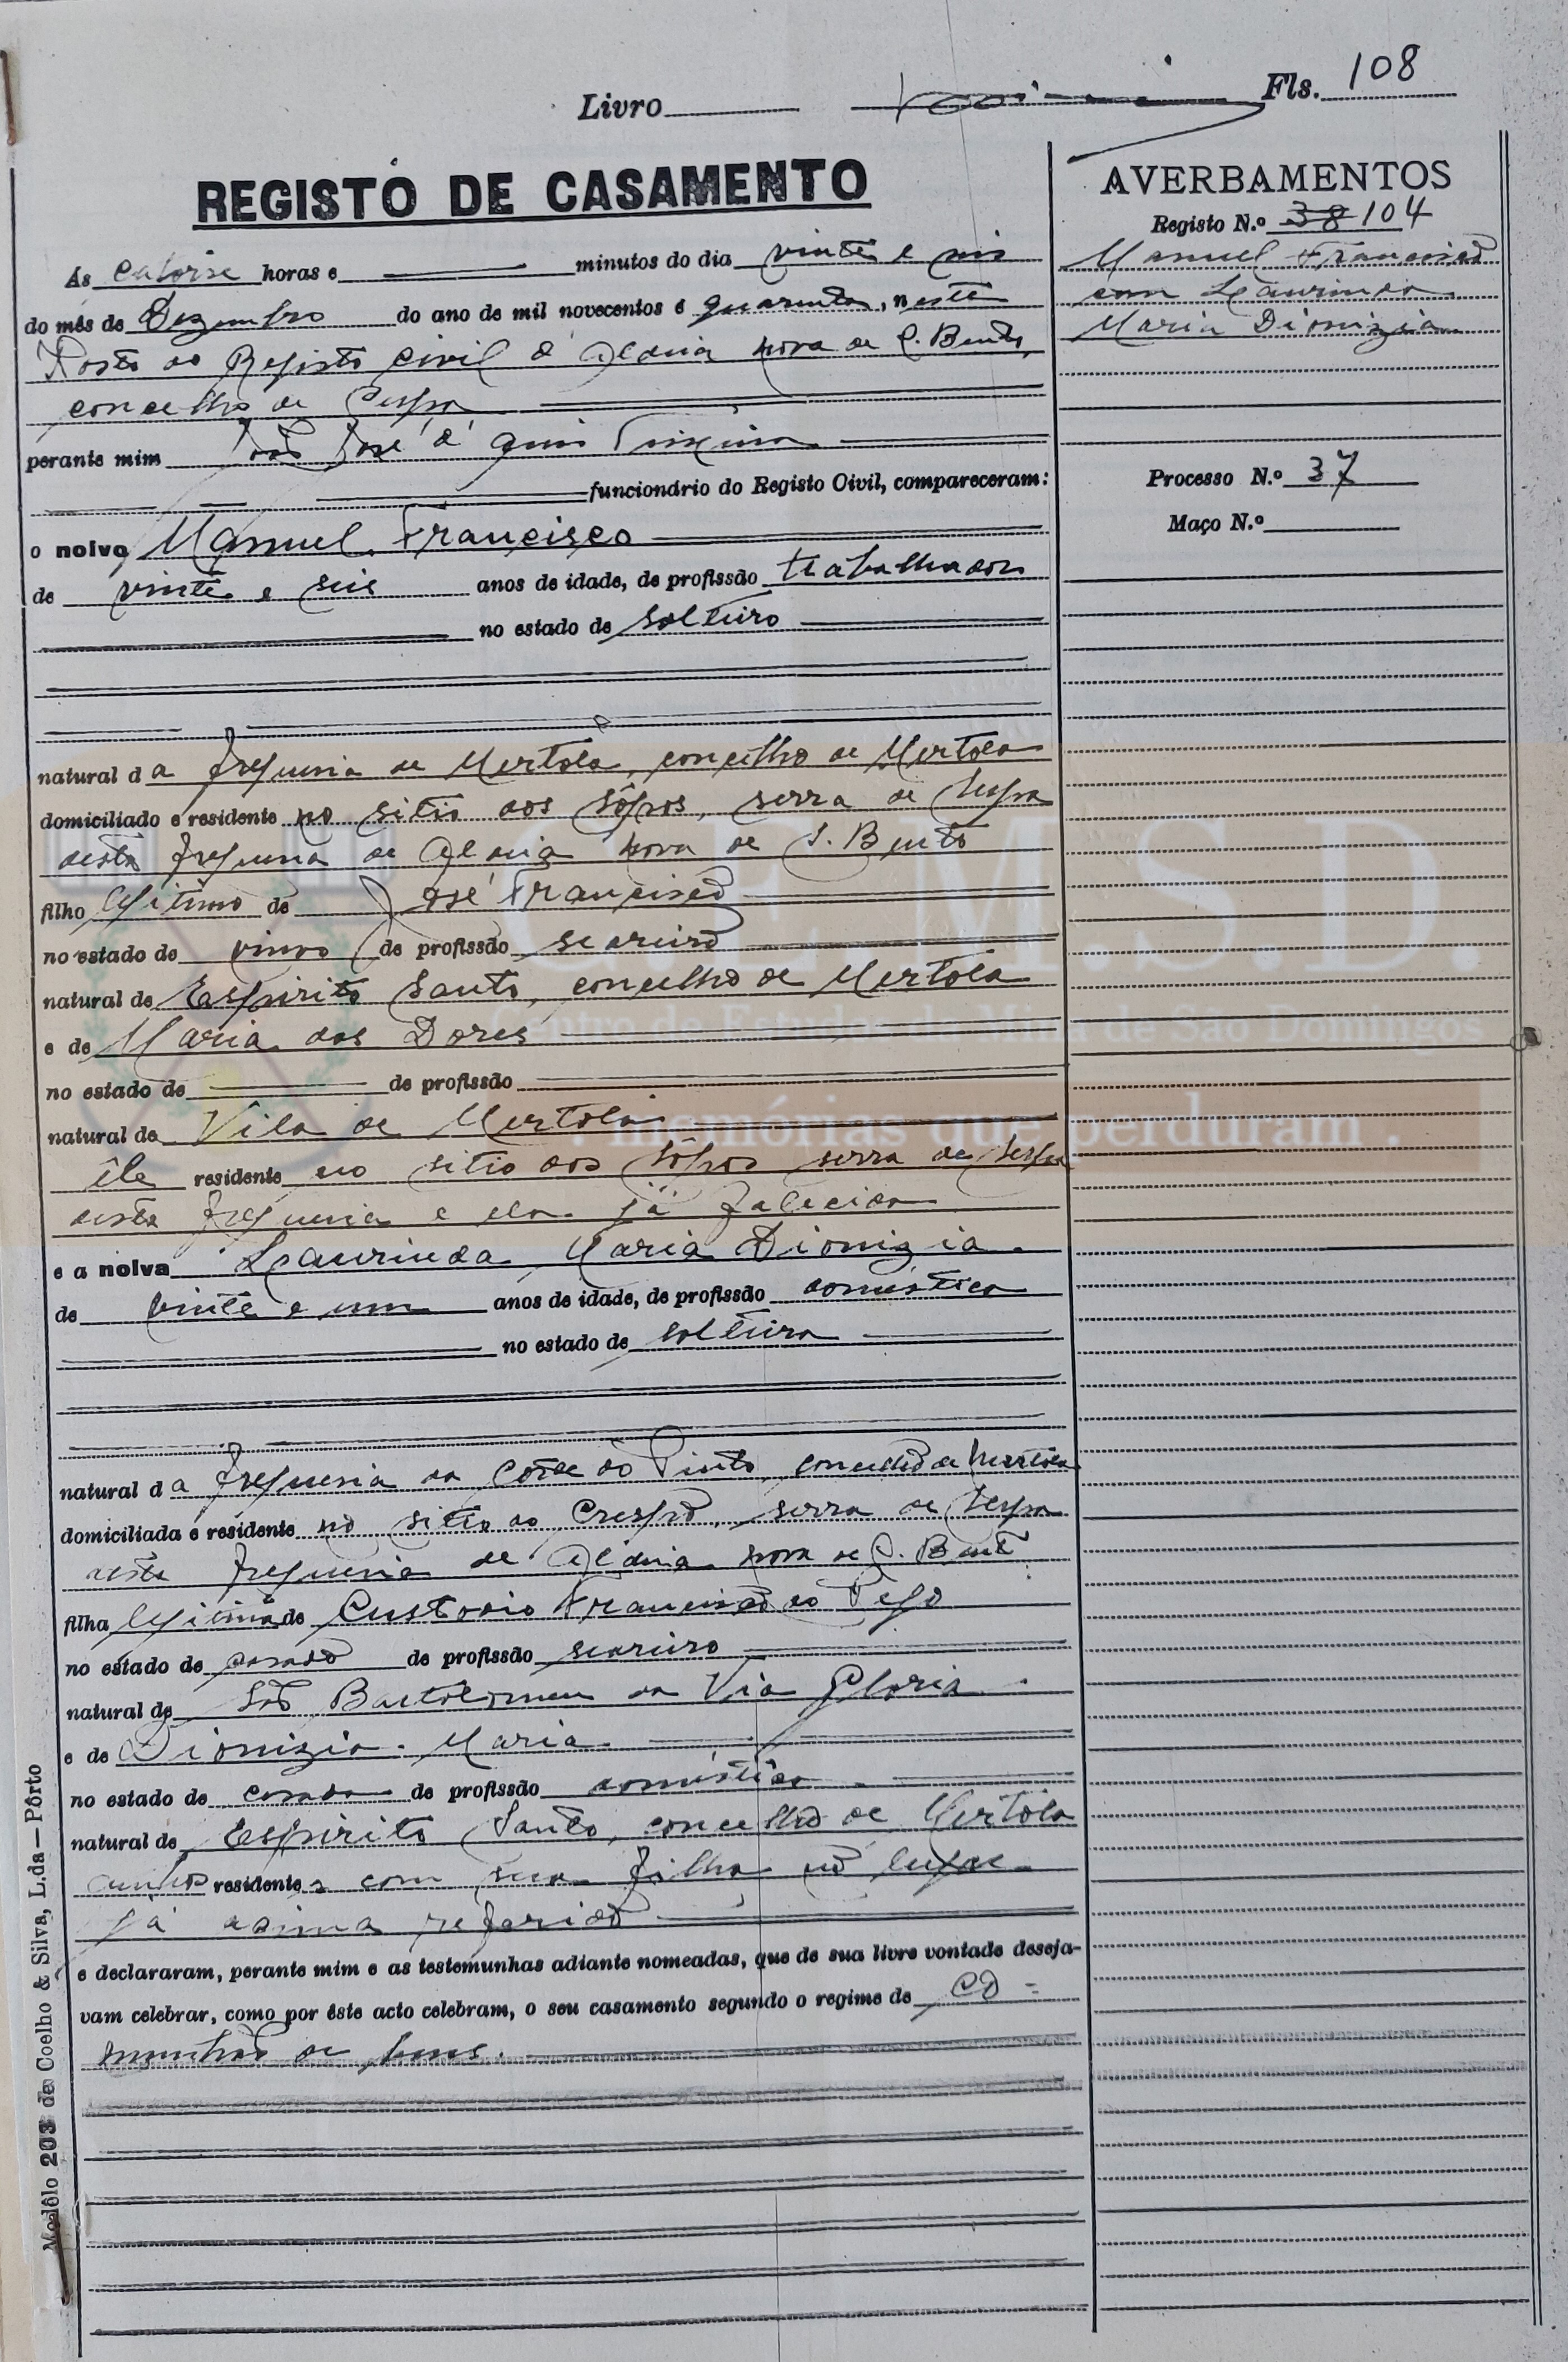 Livro Fls. 108
REGISTO DE CASAMENTO
AVERBAMENTOS
Registo N.º 38 104
Manuel Francisco
com Laurinda
Maria Dionizia
Processo N.º 37
Maço N.º
Ás catorse horas e minutos do dia vinte e seis
do mês de Dezembro do ano de mil novecentos e quarenta, neste
Posto do Registo Civil d'Aldeia Nova de S. Bento,
concelho de Serpa
perante mim João José d'
funcionário do Registo Civil, compareceram:
o noivo, Manuel Francisco
de vinte e seis anos de idade, de profissão trabalhador
no estado de solteiro
natural da freguesia de Mertola, concelho de Mertola
domiciliado e residente no sitio dos serra de Serpa
desta freguesia de Aldeia Nova de S. Bento
filho legitimo de José Francisco
no estado de viuvo de profissão seareiro
natural de Espirito Santo, concelho de Mertola
e de Maria das Dores
no estado de de profissão
natural de Vila de Mertola
êle residente no sitio dos serra de Serpa
desta freguesia e ela já falecida
e a noiva Laurinda Maria Dionizia
de vinte e um anos de idade, de profissão domestica
no estado de solteira
natural da freguesia da Corte do Pinto, concelho de Mertola
domiciliada e residente no sitio do Crespo, serra de Serpa
desta freguesia de Aldeia Nova de S. Bento
filha legitima de Custodio Francisco do Pego
no estado de casado de profissão seareiro
natural de São Bartolomeu da Via Gloria
e de Dionizia Maria
no estado de casada de profissão domestica
natural de Espirito Santo, concelho de Mertola
ambos residentes com sua filha no lugar
já acima referido
e declararam, perante mim e as testemunhas adiante nomeadas, que de sua livre vontade deseja-
vam celebrar, como por êste acto celebram, o seu casamento segundo o regime de co=
munhão de bens.
Modêlo 203 de Coelho & Silva, L.da — Pôrto
C.E.M.S.D.
Centro de Estudos da Mina de São Domingos
. memórias que perduram .